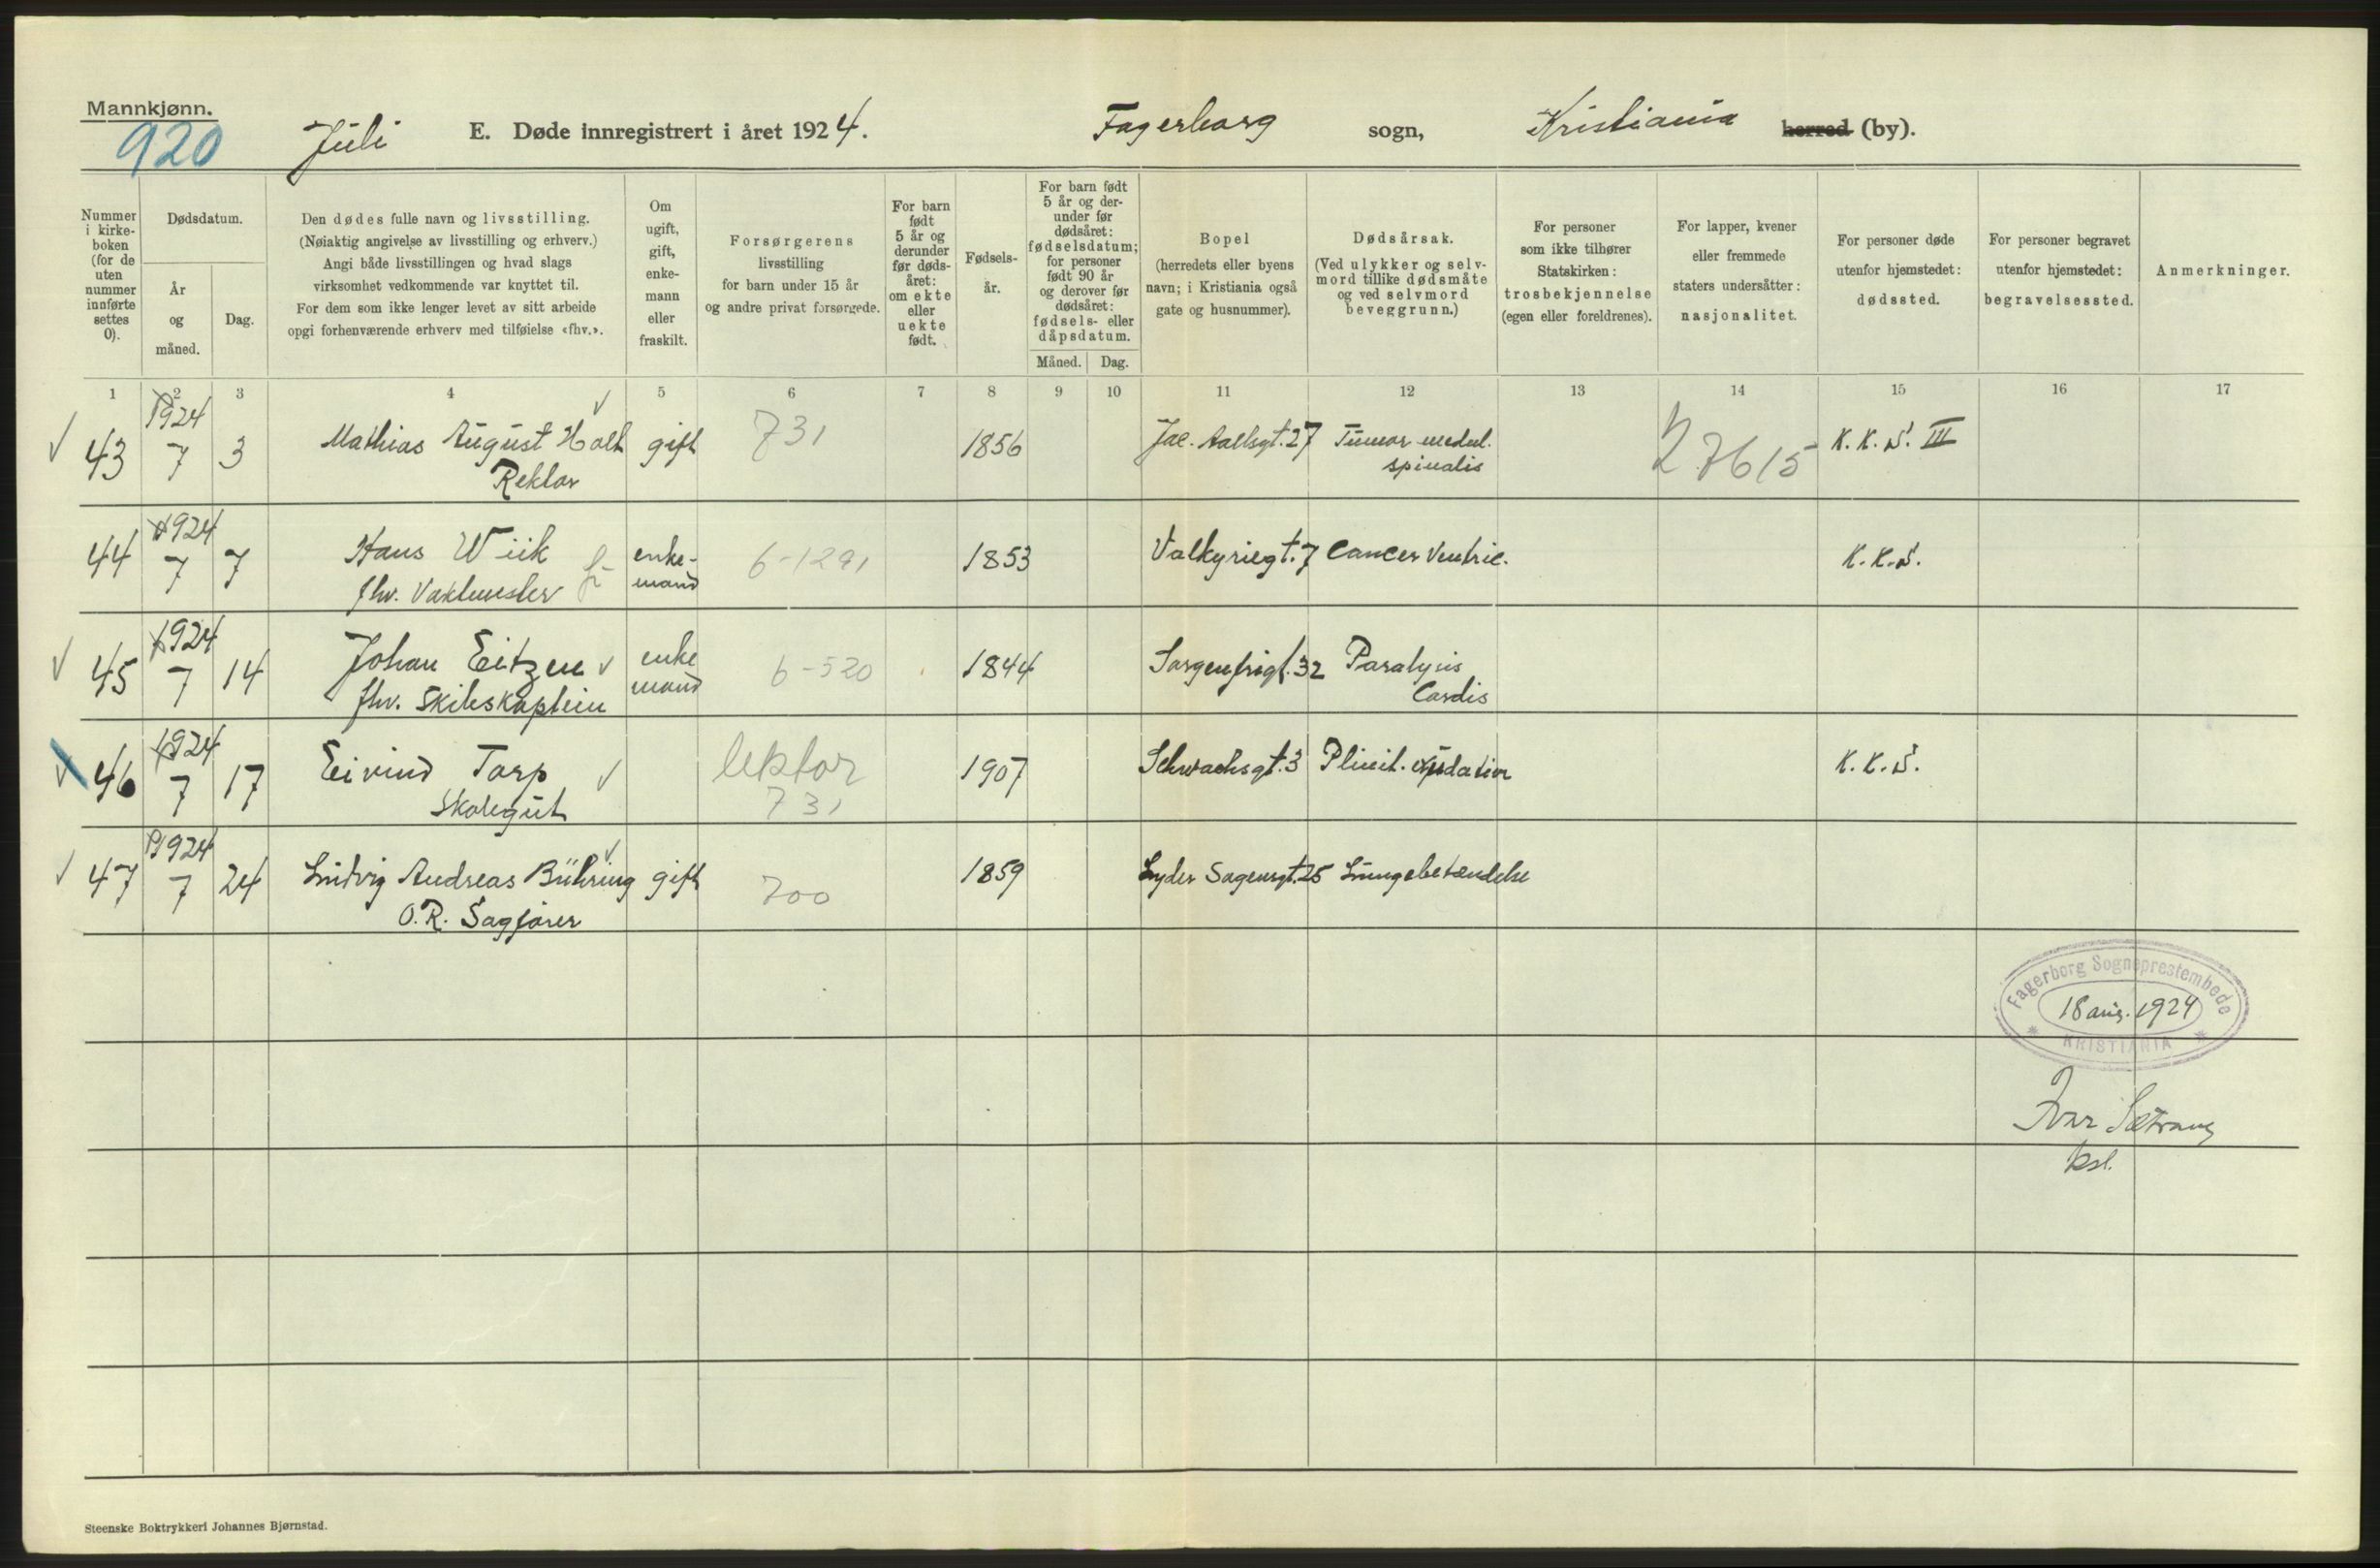 Mannkjønn.
920
Juli E. Døde innregistrert i året 1924. Fagerborg sogn, Kristiania herred (by).
Nummer i kirke- boken (for de uten nummer innførte settes 0).
Dødsdatum.
År og måned.
Dag.
Den dødes fulle navn og livsstilling.
(Nøiaktig angivelse av livsstilling og erhverv.)
Angi både livsstillingen og hvad slags
virksomhet vedkommende var knyttet til.
For dem som ikke lenger levet av sitt arbeide
opgi forhenværende erhverv med tilføielse «fhv.».
Om ugift, gift, enke- mann eller fraskilt.
Forsørgerens
livsstilling
for barn under 15 år
og andre privat forsørgede.
For barn født 5 år og derunder før døds- året: om ekte eller uekte født.
Fødsels- år.
For barn født 5 år og der- under før dødsåret: fødselsdatum; for personer født 90 år og derover før dødsåret: fødsels- eller dåpsdatum.
Måned. Dag.
Bopel
(herredets eller byens
navn; i Kristiania også
gate og husnummer).
Dødsårsak.
(Ved ulykker og selv-
mord tillike dødsmåte
og ved selvmord
beveggrunn.)
For personer
som ikke tilhører
Statskirken:
trosbekjennelse
(egen eller foreldrenes).
For lapper, kvener
eller fremmede
staters undersåtter:
nasjonalitet.
For personer døde
utenfor hjemstedet:
dødssted.
For personer begravet
utenfor hjemstedet:
begravelsessted.
Anmerkninger.
1 2 3 4 5 6 7 8 9 10 11 12 13 14 15 16 17
1924
43 7 3 Mathias August Holt gift 731 1856 Jac. Aallsgt. 27 Tumor medul. 27615 K.K.S. III
Rektor spinalis
1924
44 7 7 Hans Wiik enke- 6-1291 1853 Valkyriegt. 7 Cancer Ventric. K.K.S.
fhv. Vaktmester mand
1924
45 7 14 Johan Eitzen enke 6-520 1844 Sorgenfrigt. 32 Paralysis
fhv. Skibskaptein mand Cordis
1924
46 7 17 Eivind Tarp lektor 1907 Schwachsgt. 3 K.K.S.
Skolegut 731
1924
47 7 24 Ludvig Andreas Bühring gift 700 1859 Lyder Sagensgt. 25 Lungebetændelse
O.R. Sagfører
Fagerborg Sogneprestembede
18 aug. 1924
KRISTIANIA
Ivar Sætrang
ksl.
Steenske Boktrykkeri Johannes Bjørnstad.